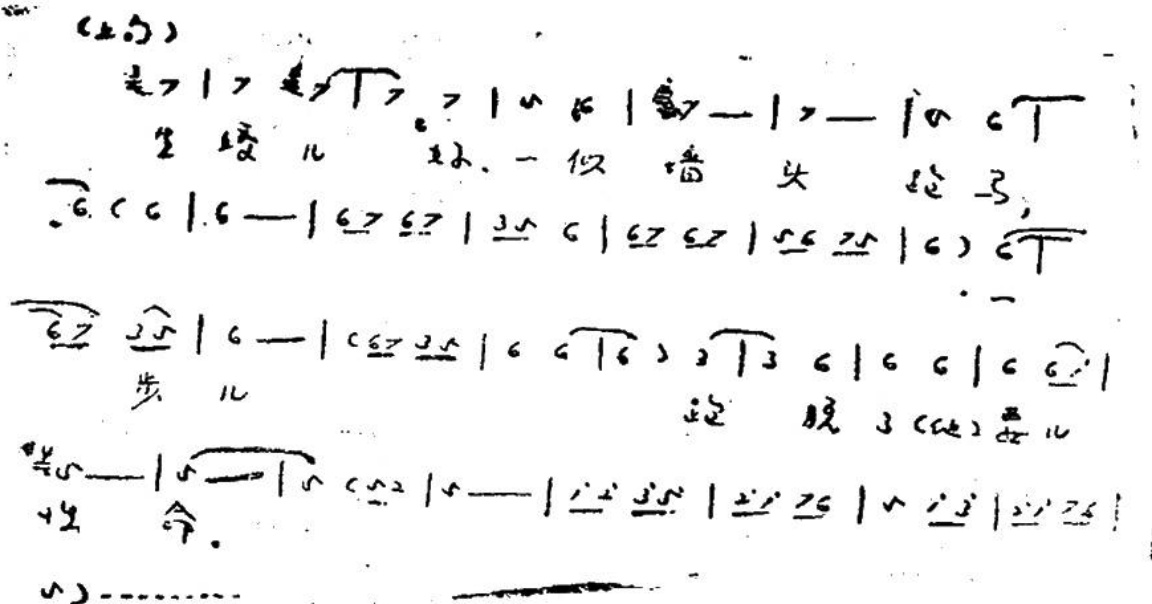 (上句)
7 | 7 7 | 7 7 | 5 6 | 7 — | 7 — | 5 6 |
儿 好、一似 墙 头 跑 马,
6 ( 6 | 6 — | 67 67 | 35 6 | 67 67 | 56 75 | 6 ) 6 |
一
67 35 | 6 — | ( 67 35 | 6 6 | 6 ) 3 | 3 6 | 6 6 | 6 6i |
步 儿 跑 脱 了 儿
5 — | 5 — | 5 ( 52 | 5 — | i2 35 | 2i 76 | 5 i3 | 2i 76 |
性 命.
5 ) - - - - - - - - -